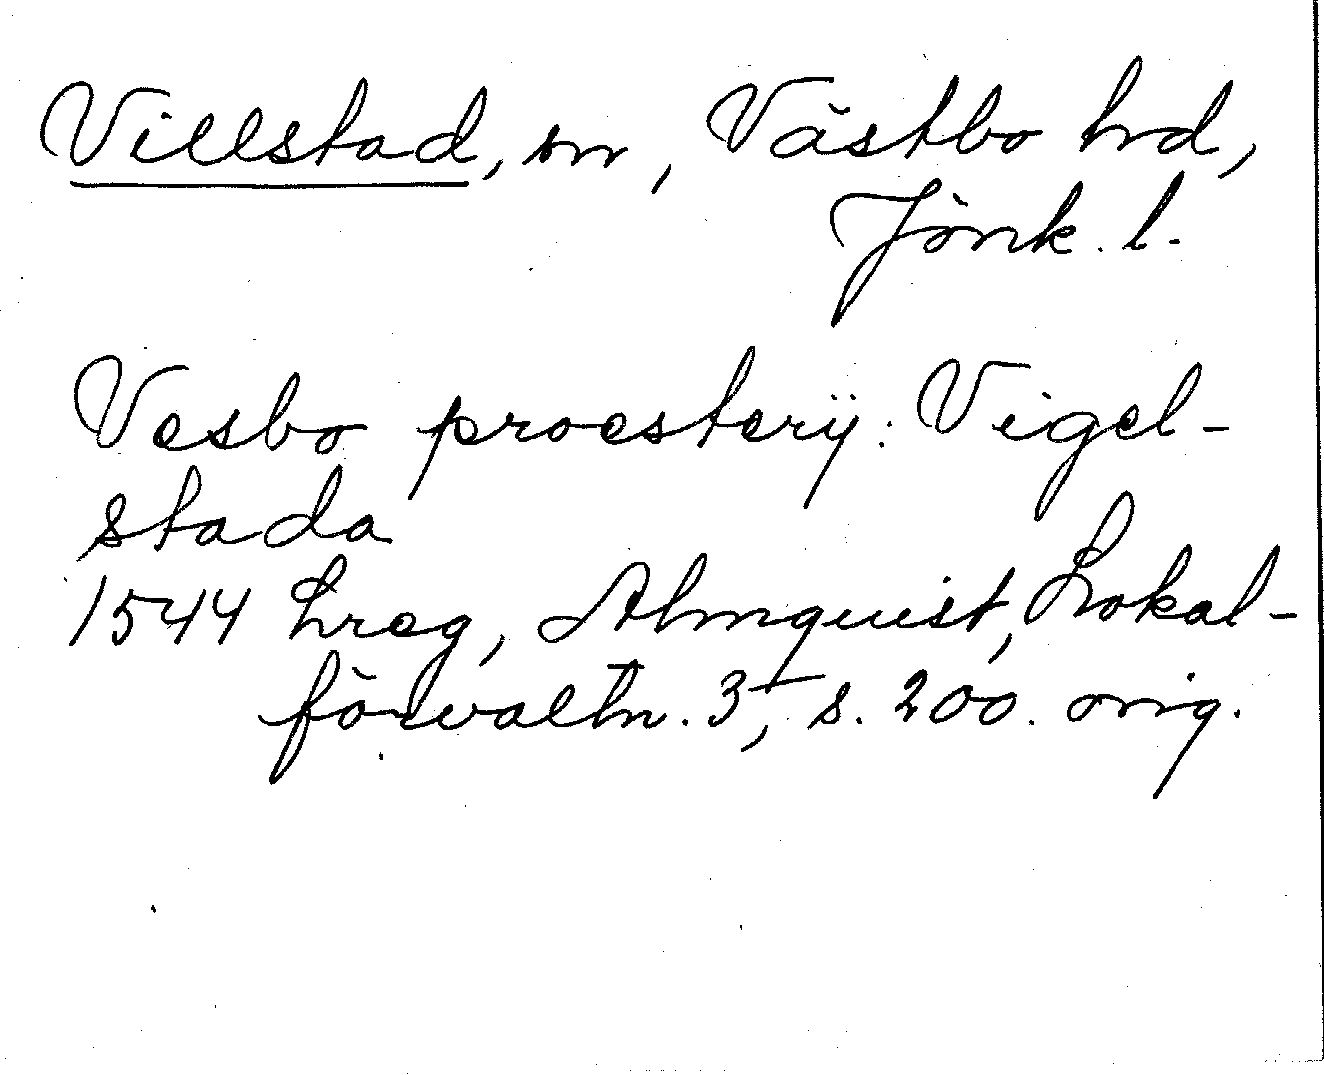 Villstad, sn, Västbo hrd,
Jönk. l.
Vesbo proesterij: Vigel-
stada
1544 Lreg, Almquist, Lokal-
förvaltn. 3, s. 200. orig.